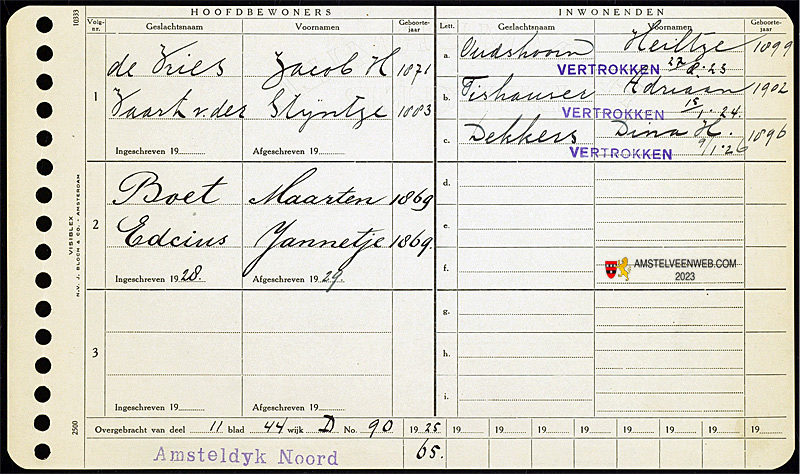 HOOFDBEWONERS
Volg-nr. Geslachtsnaam Voornamen Geboorte-jaar
1
de Vries Jacob H 1871
Vaart v. der Stijntje 1883
Ingeschreven 19 Afgeschreven 19
2
Boet Maarten 1869
Edcius Jannetje 1869.
Ingeschreven 1928. Afgeschreven 1929.
3
Ingeschreven 19 Afgeschreven 19
INWONENDEN
Lett. Geslachtsnaam Voornamen Geboorte-jaar
a. Oudshoorn Heiltje 1899
VERTROKKEN 27 8.23
b. Tishauser Adriaan 1902
VERTROKKEN 15/1.24.
c. Dekkers Dina H. 1896
VERTROKKEN 9/1.26
d.
e.
f.
AMSTELVEENWEB.COM
2023
g.
h.
i.
Overgebracht van deel 11 blad 44 wijk D No. 90 1925. 19 19 19 19 19 19 19 19
Amsteldyk Noord 65.
10333
VISIBLEX
N.V. J. BLOCH & CO. AMSTERDAM
2500